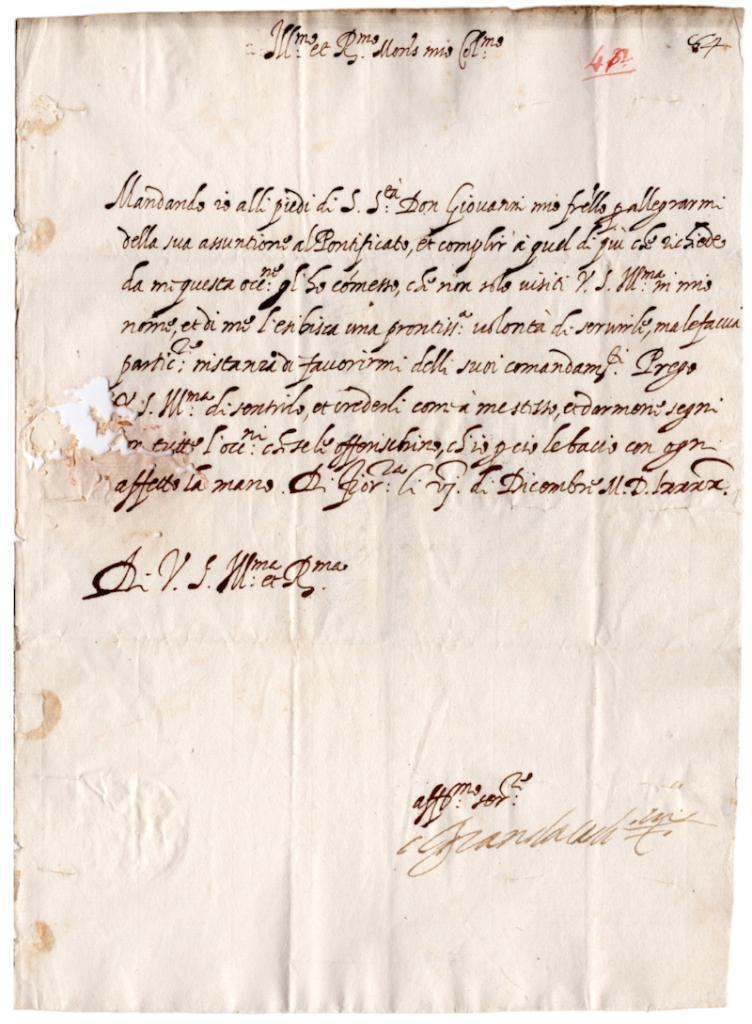 Ill:mo et R.mo Mons.r mio Col.mo
48
84
Mandando io alli piedi di S. S.tà Don Giovanni mio fr'ello p allegrarmi
della sua assuntione al Pontificato, et complir' à quel di più che richiede
da me questa occ:ne gl'ho com'esso, che non solo visiti V. S. Ill:ma in mio
nome, et di me l'esibisca una prontiss:a volontà di servirle, ma le faccia
partic:re instanza di favorirmi delli suoi comandam:ti. Prego
V. S. Ill:ma di sentirlo, et crederli come à me stesso, et darmene segni
in tutte l'occ:ni che se le offerischino, ch'io p ciò le bacio con ogni
affetto la mano. Di Fior:za li vj. di Dicembre M.D.lxxxx.
Di V. S. Ill:ma et R.ma
aff.mo ser:re